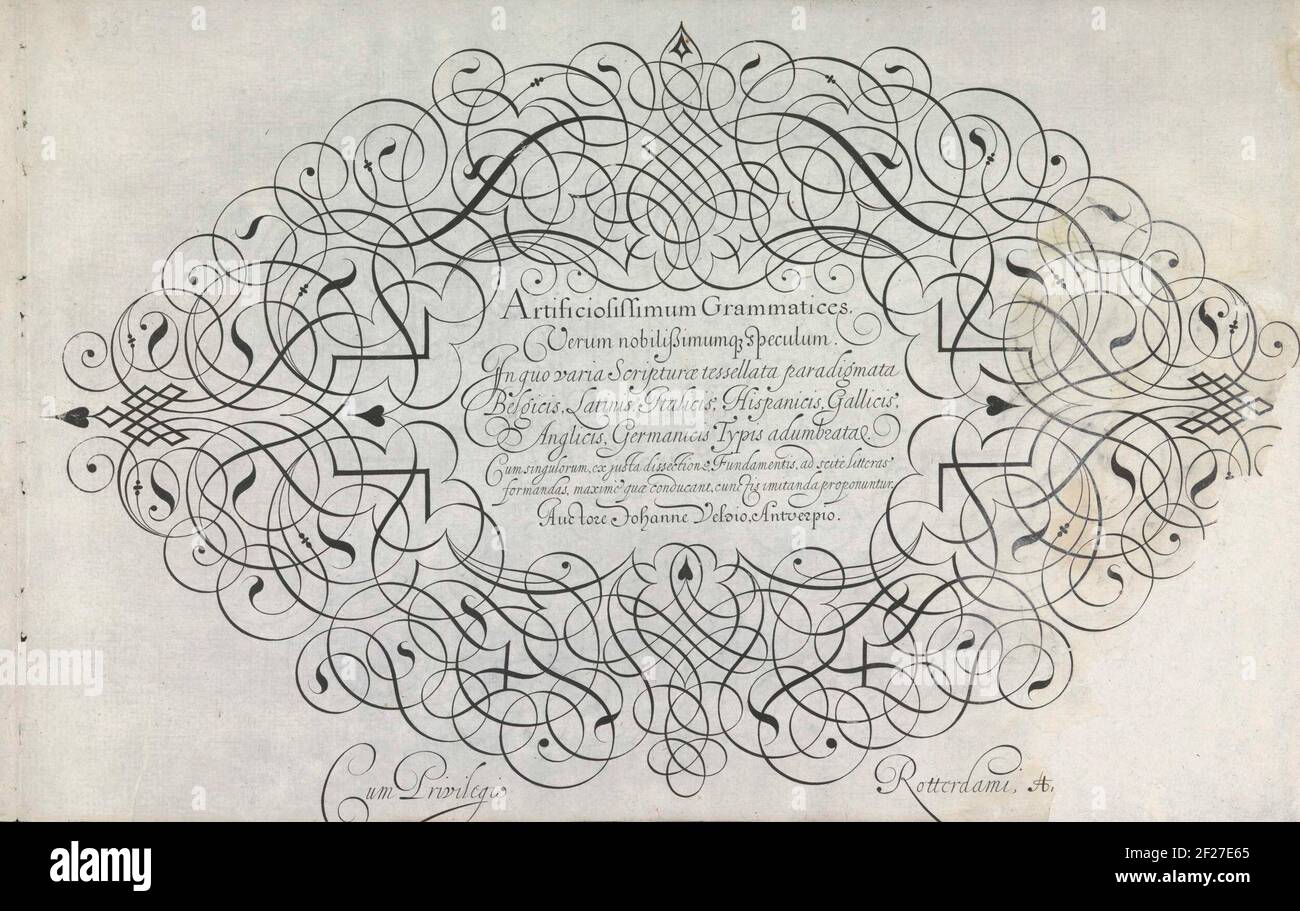 Artificiosissimum Grammatices.
Verum nobilißimumq3 speculum.
In quo varia Scripturæ tessellata paradigmata
Belgicis, Latinis, Italicis, Hispanicis, Gallicis,
Anglicis, Germanicis Typis adumbrata.
Cum singulorum, ex justa dissectione, Fundamentis, ad scite litteras
formandas, maxime quæ conducant, cunctis imitanda proponuntur.
Auctore Johanne Veldio, Antverpio.
Cum Privilegio
Rotterdami, A.
a
alamy
a
alamy
a
alamy
Image ID: 2F27E65
www.alamy.com